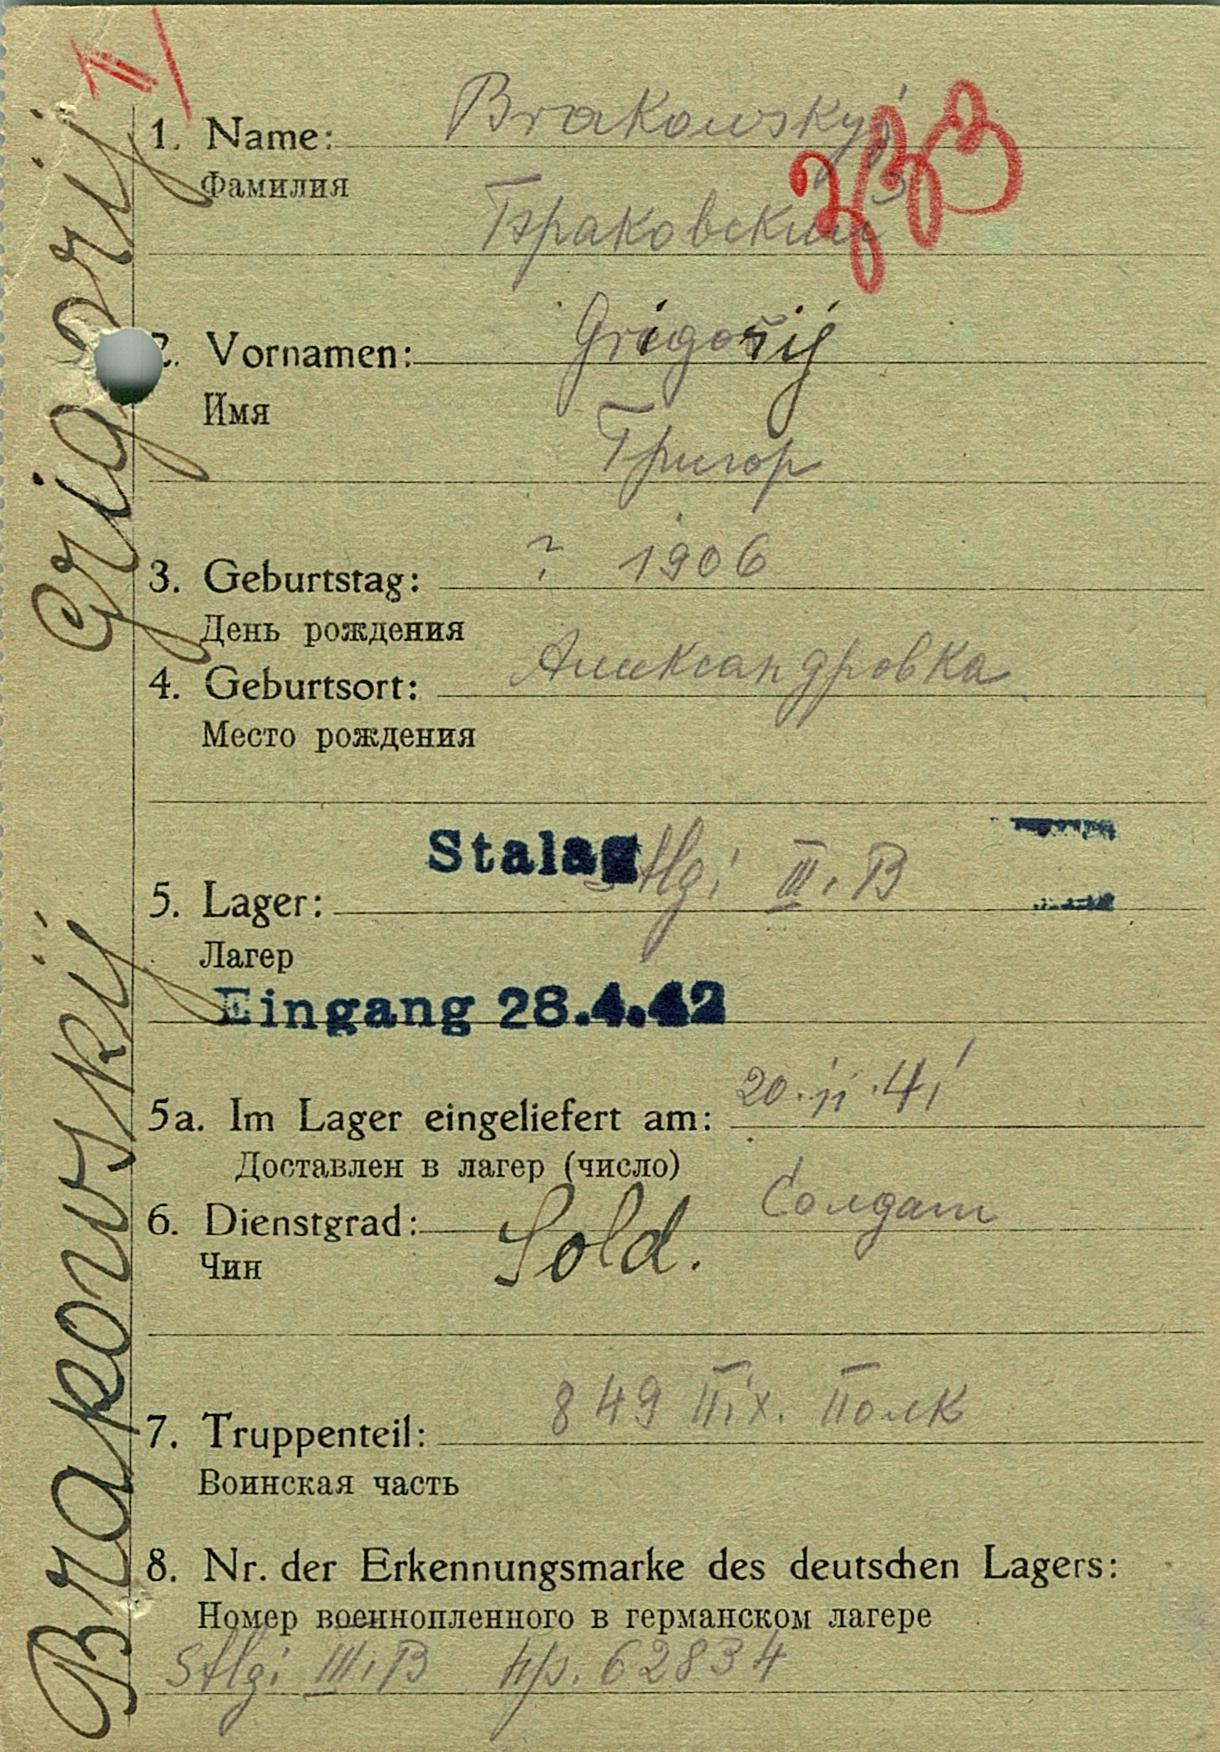 II/
1. Name: Brakowskyj
Фамилия
Браковский
2. Vornamen: Grigorij
Имя
Григор
3. Geburtstag: ? 1906
День рождения
4. Geburtsort: Александровка
Место рождения
Stalag
5. Lager: Stlg: III. B
Лагер
Eingang 28.4.42
5a. Im Lager eingeliefert am: 20.11.41
Доставлен в лагер (число)
6. Dienstgrad: Sold. Солдат
Чин
7. Truppenteil: 849 Піх. Полк
Воинская часть
8. Nr. der Erkennungsmarke des deutschen Lagers:
Номер военнопленного в германском лагере
Stlg: III. B нр. 62834
Brakowskij Grigorij